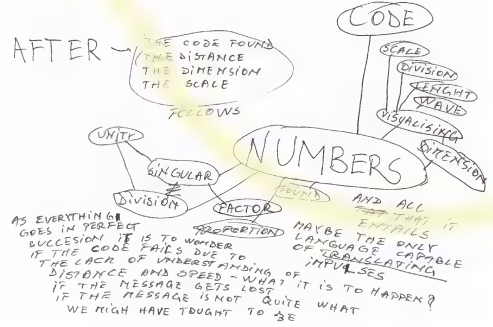 CODE
AFTER -
THE CODE FOUND
THE DISTANCE
THE DIMENSION
THE SCALE
FOLLOWS
SCALE
DIVISION
LENGHT
WAVE
VISUALISING
DIMENSION
UNITY
SINGULAR
DIVISION
NUMBERS
FACTOR
PROPORTION
SOUND
AND ALL
THAT IT
ENTAILS
MAYBE THE ONLY
LANGUAGE CAPABLE
OF TRANSLATING
IMPULSES
AS EVERYTHING
GOES IN PERFECT
SUCCESION IT IS TO WONDER
IF THE CODE FAILS DUE TO
THE LACK OF UNDERSTANDING OF
DISTANCE AND SPEED - WHAT IT IS TO HAPPEN?
IF THE MESSAGE GETS LOST
IF THE MESSAGE IS NOT QUITE WHAT
WE MIGH HAVE TOUGHT TO BE